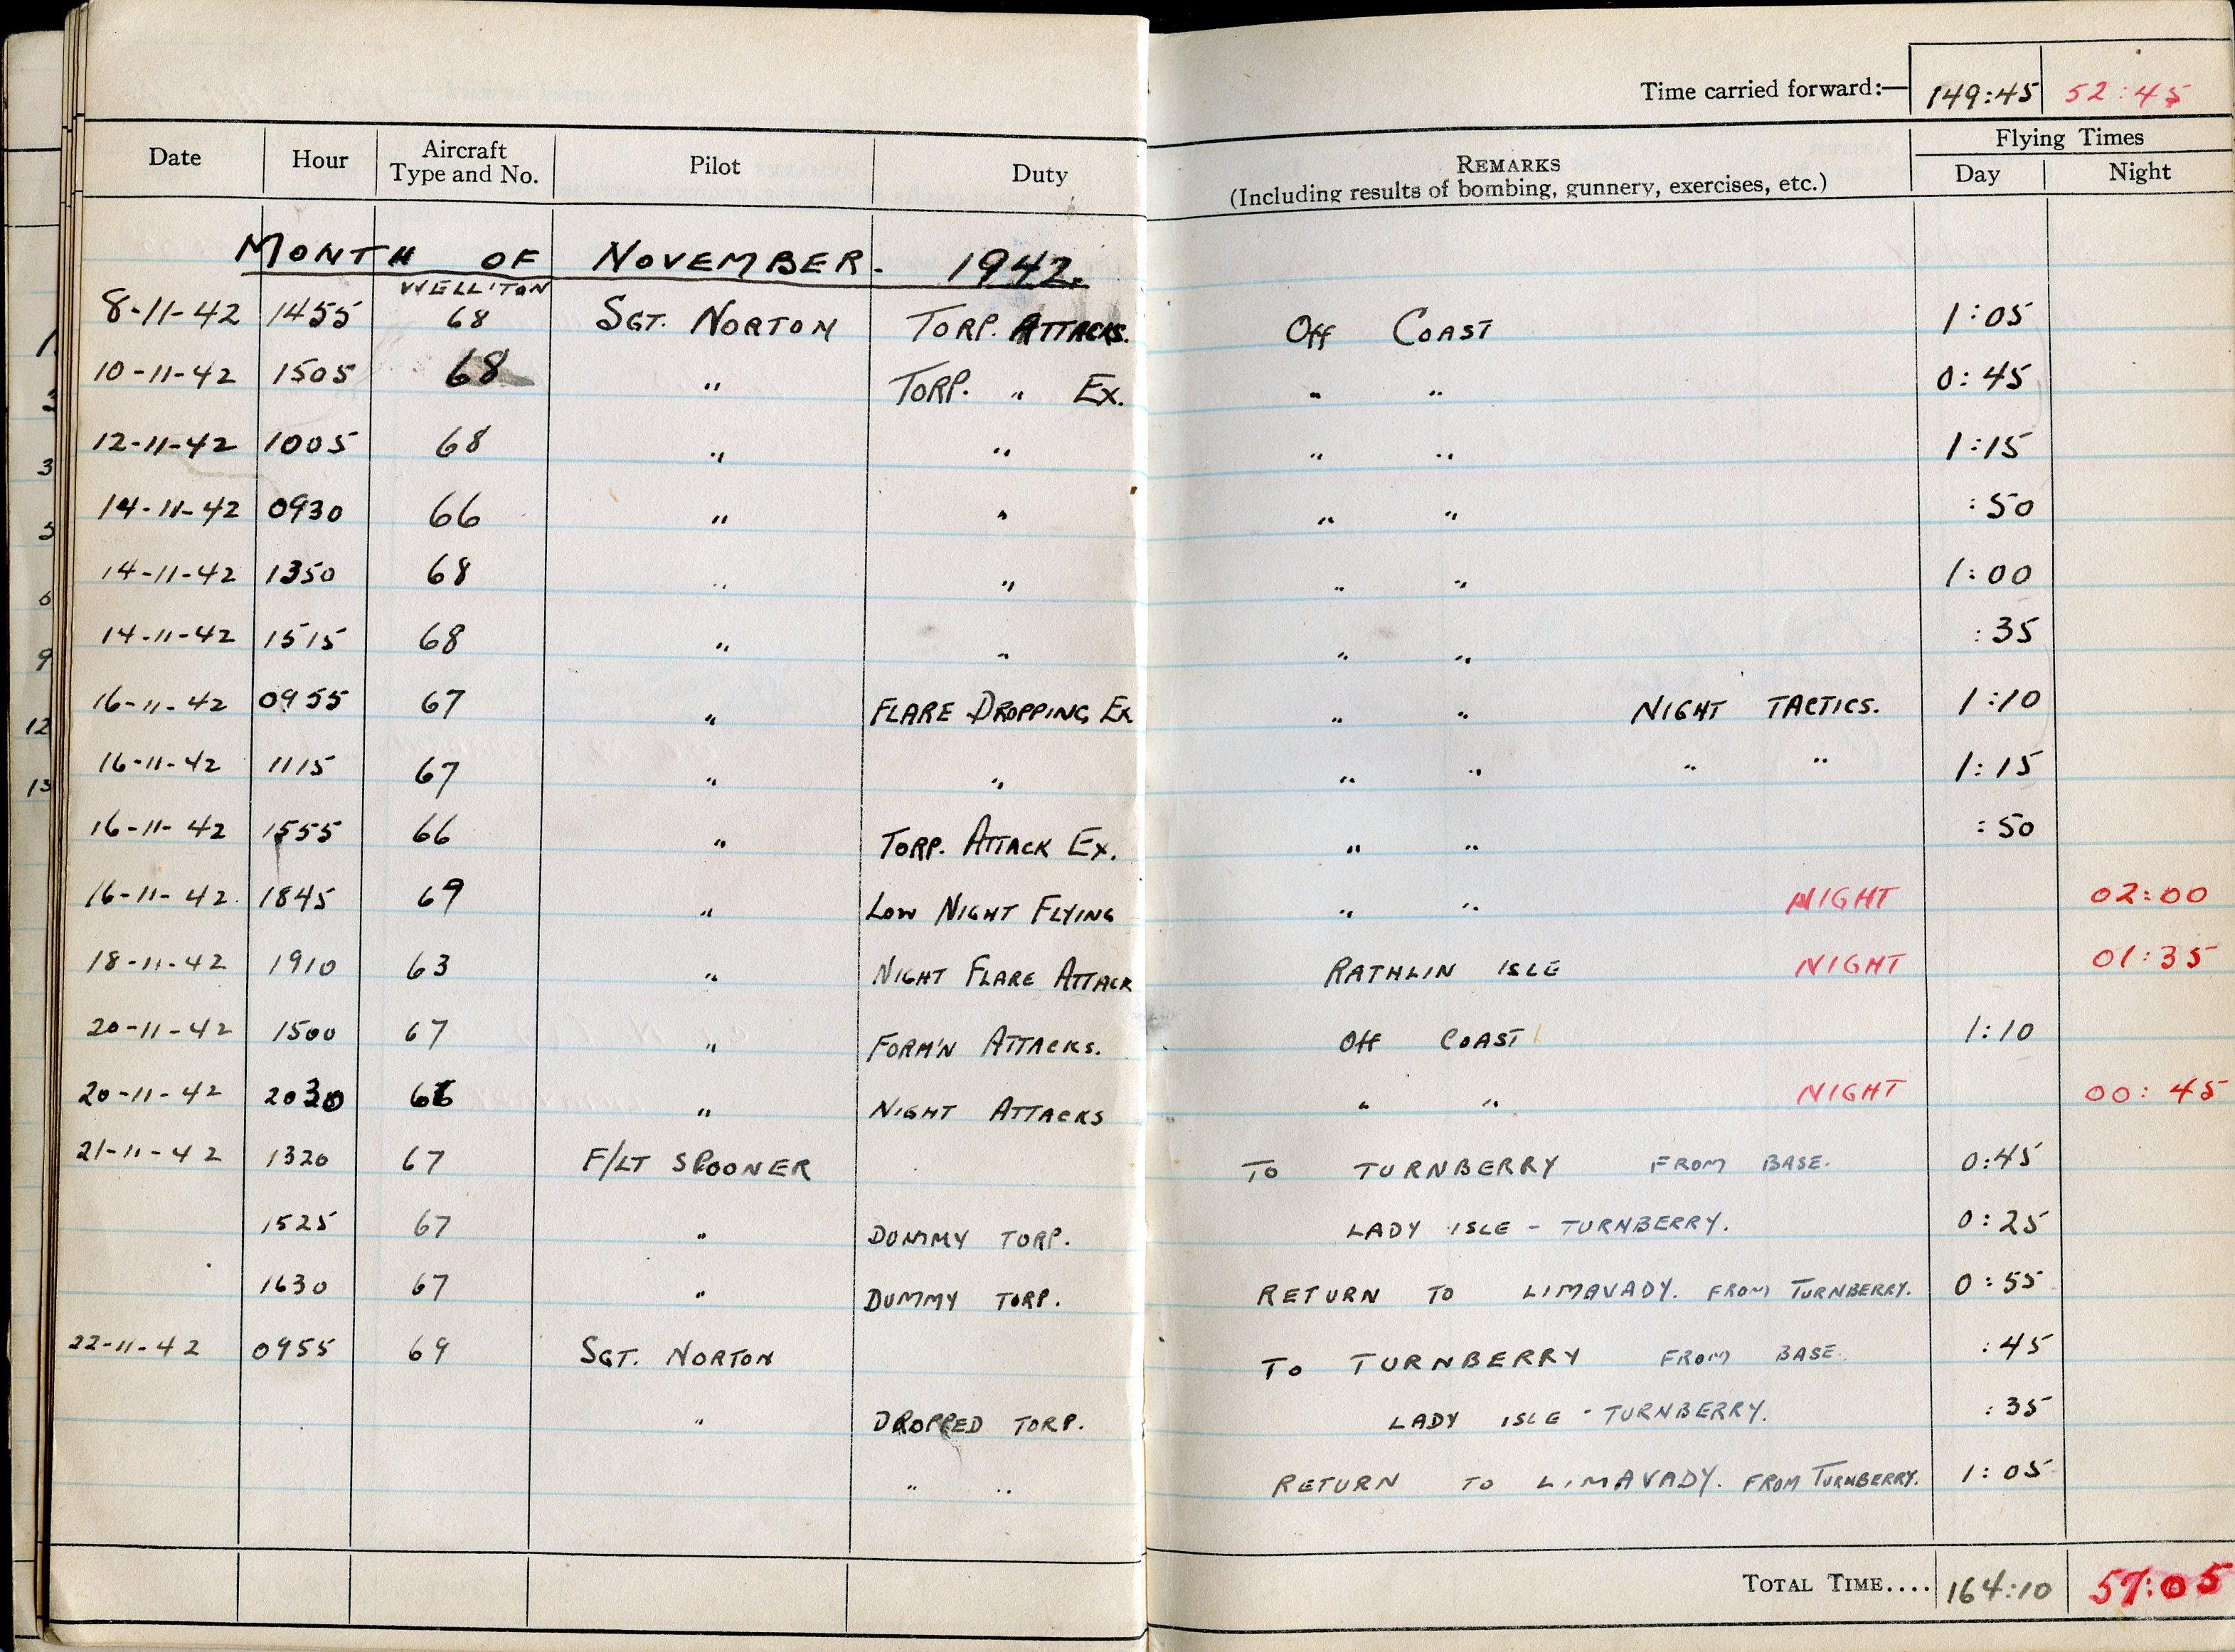 Time carried forward:— 149:45 52:45
Date Hour Aircraft Type and No. Pilot Duty REMARKS (Including results of bombing, gunnery, exercises, etc.) Flying Times Day Night
MONTH OF NOVEMBER. 1942.
WELLITON
8-11-42 1455 68 SGT. NORTON TORP. ATTACKS. Off COAST 1:05
10-11-42 1505 68 " TORP. " EX. " " 0:45
12-11-42 1005 68 " " " " 1:15
14-11-42 0930 66 " " " " :50
14-11-42 1350 68 " " " " 1:00
14-11-42 1515 68 " " " " :35
16-11-42 0955 67 " FLARE DROPPING EX " " NIGHT TACTICS. 1:10
16-11-42 1115 67 " " " " " " 1:15
16-11-42 1555 66 " TORP. ATTACK EX. " " :50
16-11-42 1845 69 " LOW NIGHT FLYING " " NIGHT 02:00
18-11-42 1910 63 " NIGHT FLARE ATTACK RATHLIN ISLE NIGHT 01:35
20-11-42 1500 67 " FORM'N ATTACKS. Off COAST 1:10
20-11-42 2030 66 " NIGHT ATTACKS " " NIGHT 00:45
21-11-42 1320 67 F/LT SPOONER TO TURNBERRY FROM BASE. 0:45
1525 67 " DUMMY TORP. LADY ISLE - TURNBERRY. 0:25
1630 67 " DUMMY TORP. RETURN TO LIMAVADY. FROM TURNBERRY. 0:55
22-11-42 0955 69 SGT. NORTON TO TURNBERRY FROM BASE. :45
" DROPPED TORP. LADY ISLE - TURNBERRY. :35
" " RETURN TO LIMAVADY. FROM TURNBERRY. 1:05
TOTAL TIME.... 164:10 57:05
3
5
6
9
12
13